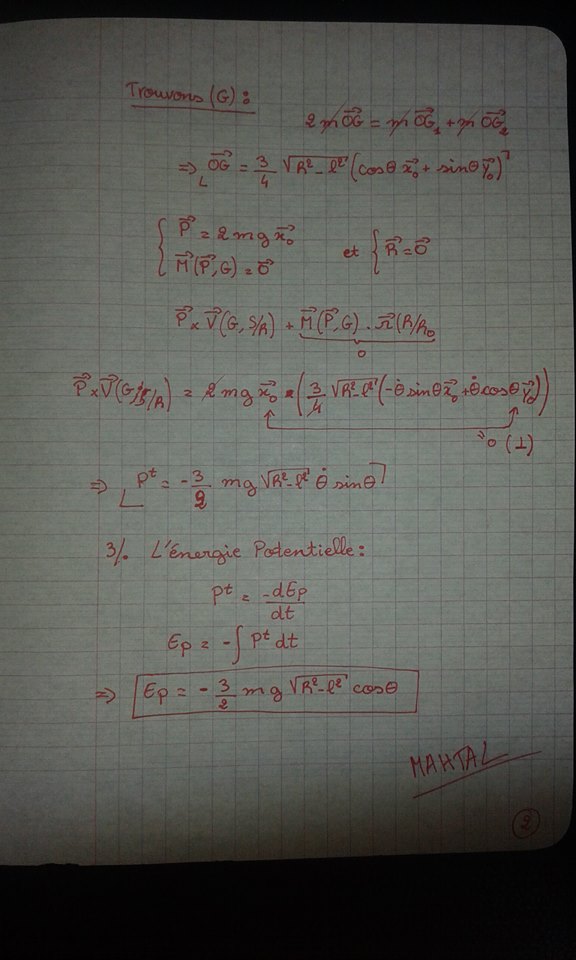 Trouvons (G) :
2 m OG⃗ = m OG⃗₁ + m OG⃗₂
⇒ OG⃗ = 3/4 √(R² - l²) (cosθ x⃗₀ + sinθ y⃗₀)
{ P⃗ = 2 m g x⃗₀
M⃗(P⃗, G) = 0⃗ et { R⃗ = 0⃗
P⃗ × V⃗(G, S/R) + M⃗(P⃗, G) . Ω⃗(R/R₀
0
P⃗ × V⃗(G, S/R) = 2 m g x⃗₀ • (3/4 √(R² - l²) (-θ̇ sinθ x⃗₀ + θ̇ cosθ y⃗₀))
= 0 (⊥)
⇒ Pᵗ = - 3/2 m g √(R² - l²) θ̇ sinθ
3/. L'énergie Potentielle :
Pᵗ = -dEp/dt
Ep = - ∫ Pᵗ dt
⇒ Ep = - 3/2 m g √(R² - l²) cosθ
MAHTAL
2